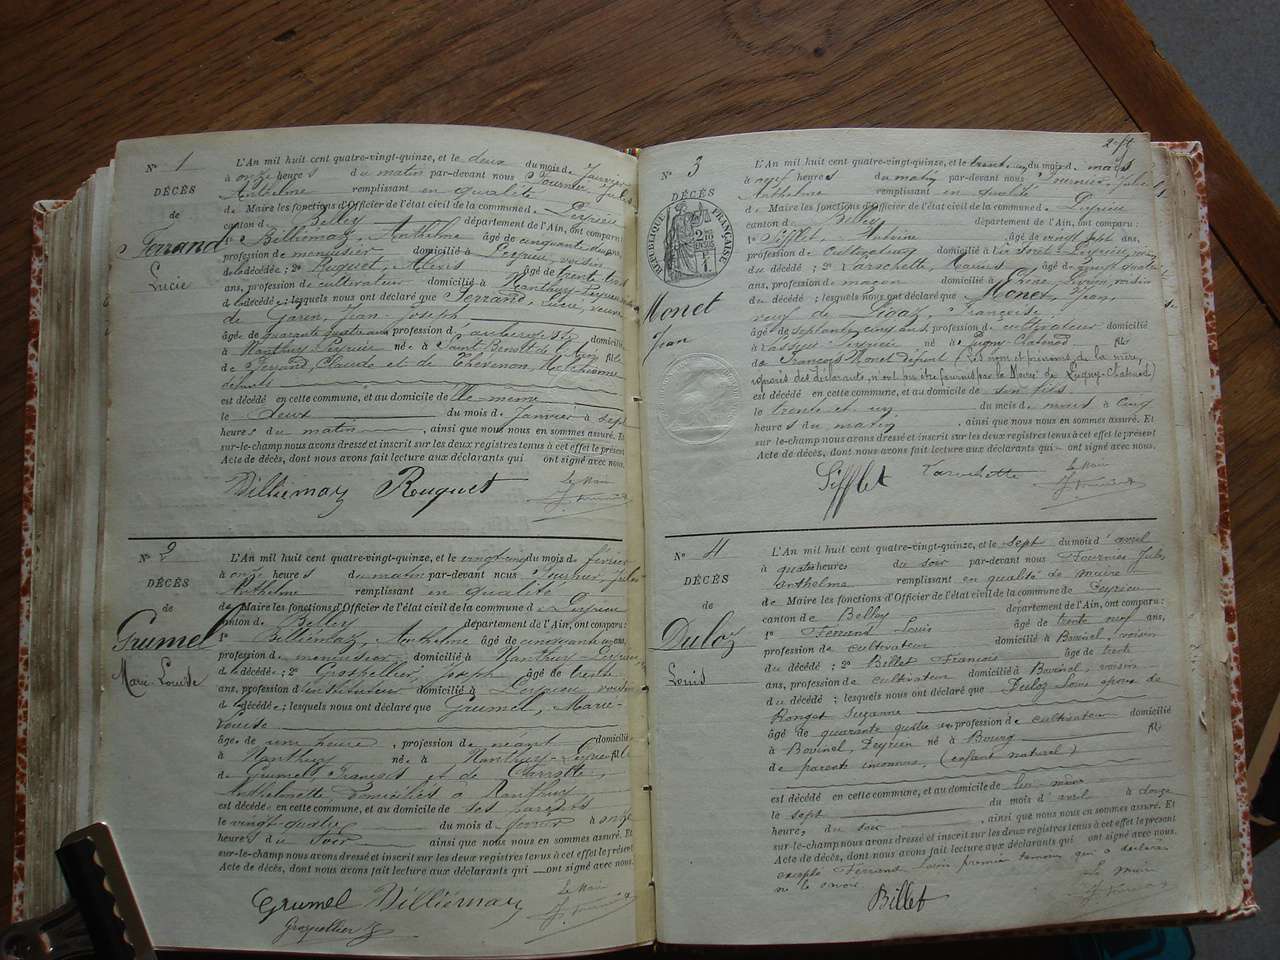 N° 1
DÉCÈS
de
Ferrand
Lucie
L'An mil huit cent quatre-vingt-quinze, et le deux du mois de Janvier
à onze heures du matin par-devant nous Fournier Jules
Anthelme remplissant en qualité
de Maire les fonctions d'Officier de l'état civil de la commune de Peyrieu
canton de Belley département de l'Ain, ont comparu :
1° Billiemaz, Anthelme âgé de cinquante deux ans,
profession de menuisier domicilié à Peyrieu, voisin
de la décédée ; 2° Roguet, Alexis âgé de trente trois
ans, profession de cultivateur domicilié à Nanthuy-Peyrieu
de la décédée ; lesquels nous ont déclaré que Ferrand, Lucie, veuve
de Garin, Jean-Joseph
âgée de quarante quatre ans profession d'aubergiste domiciliée
à Nanthuy-Peyrieu née à Saint-Benoît de l'Ain fille
de Ferrand, Claude et de Thevenon,
défunts
est décédée en cette commune, et au domicile d'elle-même
le deux du mois de Janvier à sept
heures du matin, ainsi que nous nous en sommes assuré. Et
sur-le-champ nous avons dressé et inscrit sur les deux registres tenus à cet effet le présent
Acte de décès, dont nous avons fait lecture aux déclarants qui ont signé avec nous.
Billiemaz Rouguet
Le Maire
J. Fournier
N° 2
DÉCÈS
de
Grumel
Marie Louise
L'An mil huit cent quatre-vingt-quinze, et le vingt du mois de février
à onze heures du matin par-devant nous Fournier, Jules
Anthelme remplissant en qualité
de Maire les fonctions d'Officier de l'état civil de la commune de Peyrieu
canton de Belley département de l'Ain, ont comparu :
1° Billiemaz, Anthelme âgé de cinquante ans,
profession de menuisier domicilié à Nanthuy-Peyrieu,
de la décédée ; 2° Grospellier, Joseph âgé de trente
ans, profession d'instituteur domicilié à Peyrieu voisin
de la décédée ; lesquels nous ont déclaré que Grumel, Marie-
Louise
âgée de une heure, profession de néant domiciliée
à Nanthuy née à Nanthuy-Peyrieu fille
de Grumel, François et de
Anthelmette domiciliés à Nanthuy
est décédée en cette commune, et au domicile de ses parents
le vingt-quatre du mois de février à onze
heures du soir ainsi que nous nous en sommes assuré. Et
sur-le-champ nous avons dressé et inscrit sur les deux registres tenus à cet effet le présent
Acte de décès, dont nous avons fait lecture aux déclarants qui ont signé avec nous.
Grumel Billiemaz
Grospellier J
Le Maire
J. Fournier
N° 3
DÉCÈS
RÉPUBLIQUE FRANÇAISE
Monet
Jean
L'An mil huit cent quatre-vingt-quinze, et le trente un du mois de mars
à neuf heures du matin par-devant nous Fournier Jules
Anthelme remplissant en qualité
de Maire les fonctions d'Officier de l'état civil de la commune de Peyrieu
canton de Belley département de l'Ain, ont comparu :
1° Sifflet, Antoine âgé de vingt sept ans,
profession de cultivateur domicilié à
du décédé ; 2° Larochette, Marius âgé de
ans, profession de maçon domicilié à Peyrieu, voisin
du décédé ; lesquels nous ont déclaré que Monet, Jean,
veuf de Françoise
âgé de septante cinq ans profession de cultivateur domicilié
à Peyrieu né à Lugny-Chatenod fils
de François Monet défunt (Les nom et prénoms de la mère,
des déclarants, n'ont pu être fournis par le Maire de Lugny-Chatenod)
est décédé en cette commune, et au domicile de son fils
le trente et un du mois de mars à cinq
heures du matin, ainsi que nous nous en sommes assuré. Et
sur-le-champ nous avons dressé et inscrit sur les deux registres tenus à cet effet le présent
Acte de décès, dont nous avons fait lecture aux déclarants qui ont signé avec nous.
Sifflet Larochette
Le Maire
J. Fournier
N° 4
DÉCÈS
de
Duloz
Louis
L'An mil huit cent quatre-vingt-quinze, et le sept du mois d'avril
à quatre heures du soir par-devant nous Fournier Jules
anthelme remplissant en qualité de maire
de Maire les fonctions d'Officier de l'état civil de la commune de Peyrieu
canton de Belley département de l'Ain, ont comparu :
1° Ferrand Louis âgé de trente neuf ans,
profession de cultivateur domicilié à Bovinel, voisin
du décédé ; 2° Billet François âgé de trente
ans, profession de cultivateur domicilié à Bovinel, voisin
du décédé ; lesquels nous ont déclaré que Duloz Louis époux de
Ronget Suzanne
âgé de quarante quatre ans profession de cultivateur domicilié
à Bovinel, Peyrieu né à Bourg fils
de parents inconnus, (enfant naturel)
est décédé en cette commune, et au domicile de lui même
le sept du mois d'avril à douze
heures du soir, ainsi que nous nous en sommes assuré. Et
sur-le-champ nous avons dressé et inscrit sur les deux registres tenus à cet effet le présent
Acte de décès, dont nous avons fait lecture aux déclarants qui ont signé avec nous.
excepté Ferrand Louis premier témoin qui a déclaré
ne le savoir
Billet
Le maire
J. Fournier